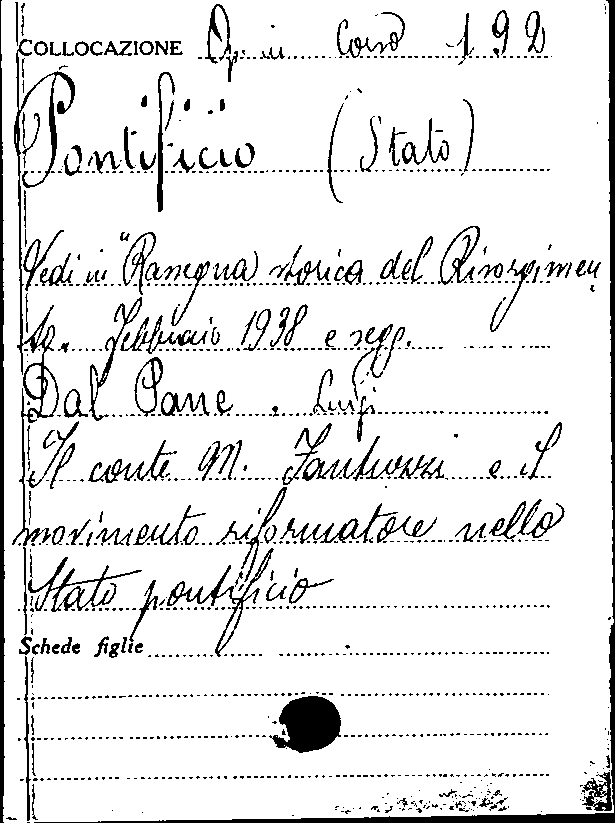 COLLOCAZIONE Op. in Corso 192
Pontificio (Stato)
Vedi in "Rassegna storica del Risorgimen
to. Febbraio 1938 e segg.
Dal Pane. Luigi
Il conte M. Fantuzzi e il
movimento riformatore nello
Stato pontificio
Schede figlie